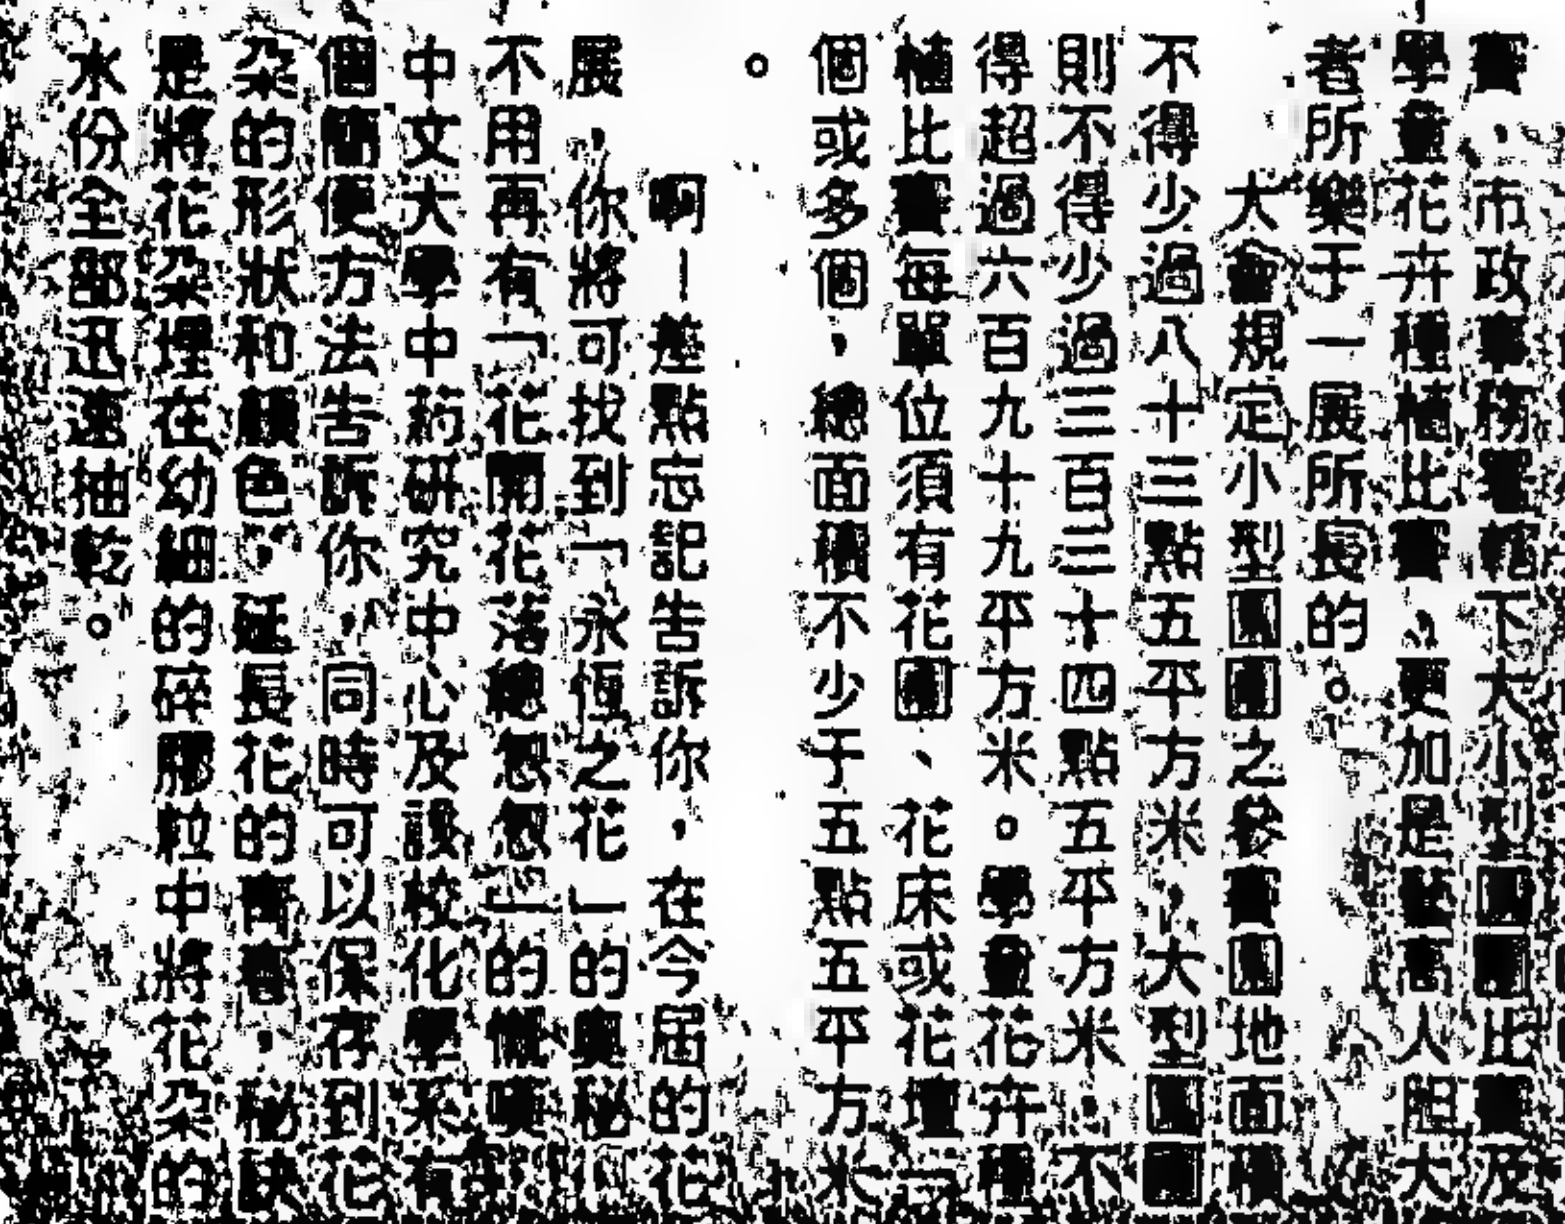 賽,市政事務署轄下大小型園圃比賽及
學童花卉種植比賽,更加是藝高人胆大
者所樂于一展所長的。
大會規定小型園圃之參賽園地面積
不得少過八十三點五平方米,大型園圃
則不得少過三百三十四點五平方米,不
得超過六百九十九平方米。學童花卉種
植比賽每單位須有花圃、花床或花壇一
個或多個,總面積不少于五點五平方米
。
啊!差點忘記告訴你,在今屆的花
展,你將可找到「永恆之花」的奧秘,
不用再有「花開花落總怱怱」的慨嘆。
中文大學中葯研究中心及該校化學系有
個簡便方法告訴你,同時可以保存到花
朶的形狀和顏色,延長花的青春,秘訣
是將花朶埋在幼細的碎膠粒中將花朶的
水份全部迅速抽乾。